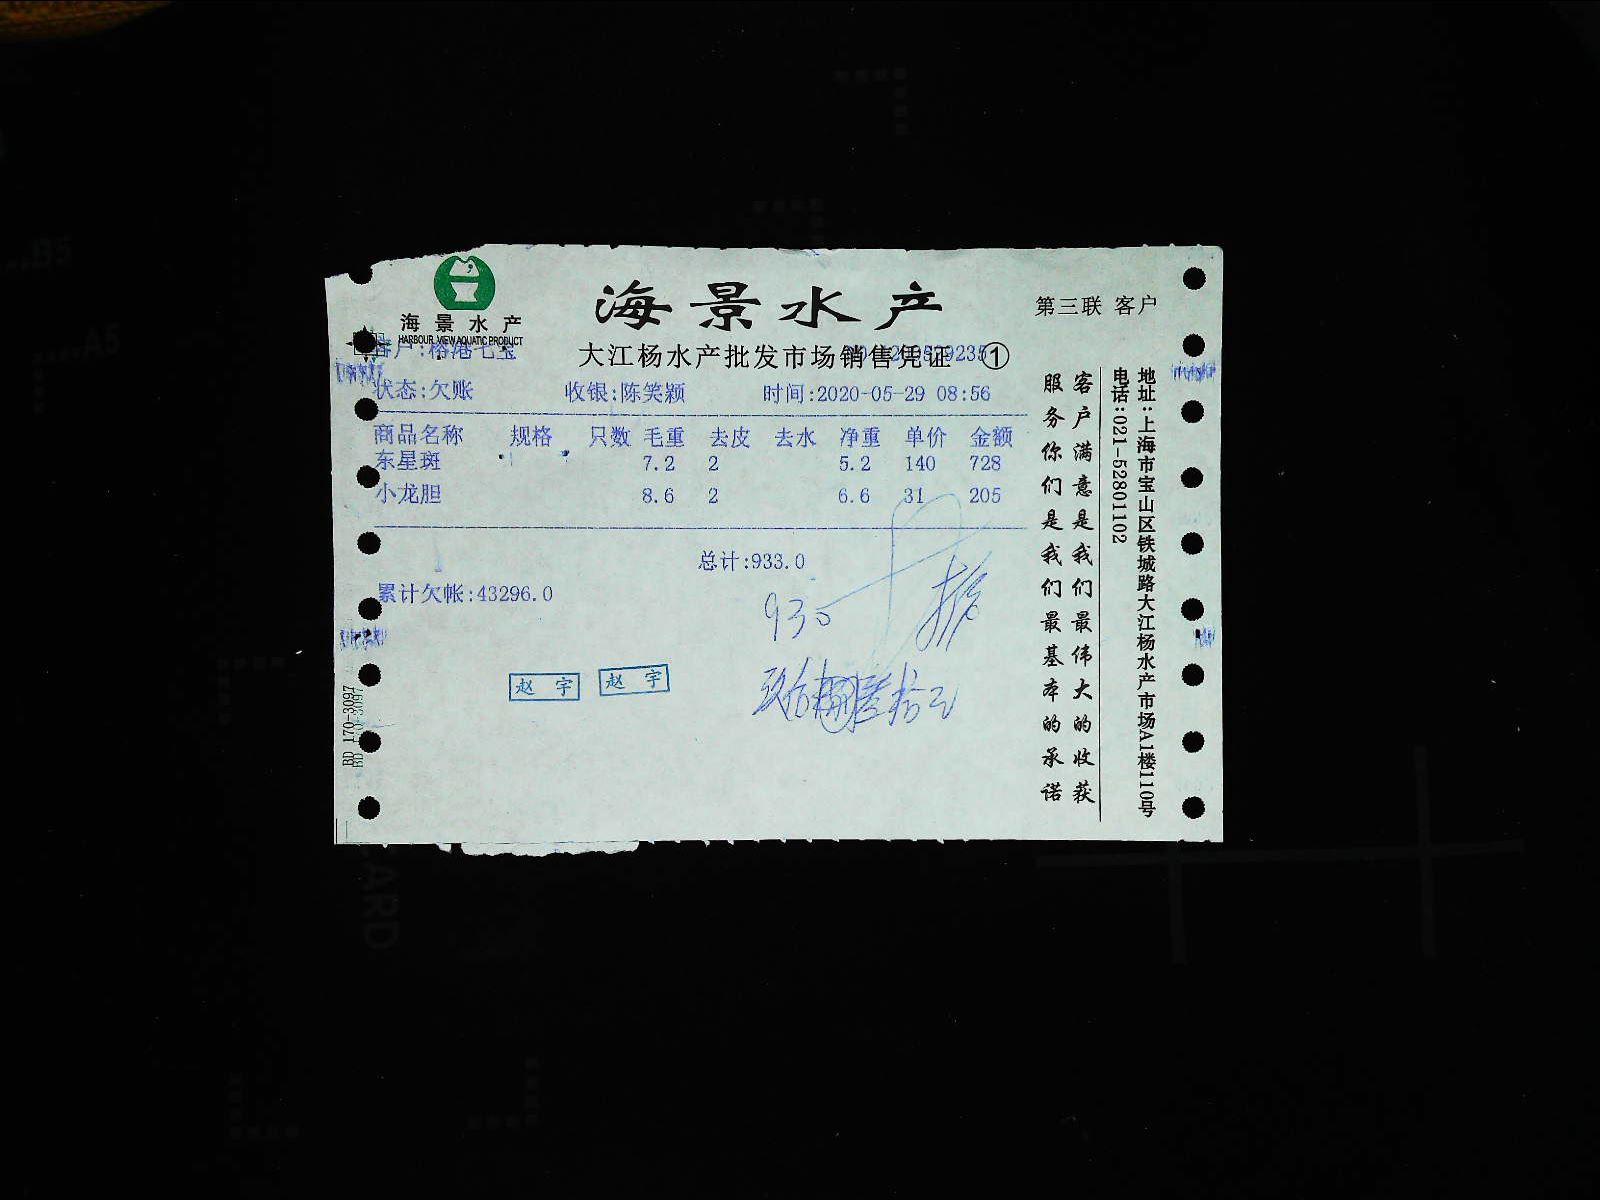 海景水产
HARBOUR VIEW AQUATIC PRODUCT
海景水产
第三联 客户
大江杨水产批发市场销售凭证 ①
状态:欠账 收银:陈笑颖 时间:2020-05-29 08:56
商品名称 规格 只数 毛重 去皮 去水 净重 单价 金额
东星斑 7.2 2 5.2 140 728
小龙胆 8.6 2 6.6 31 205
总计:933.0
累计欠帐:43296.0
930
赵宇 赵宇
BD 170-3097
客户满意是我们最伟大的收获
服务你们是我们最基本的承诺
地址:上海市宝山区铁城路大江杨水产市场A1楼110号
电话:021-52801102